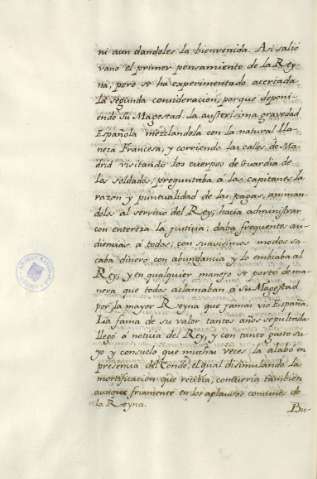 ni aun dandoles la bienvenida. Asi salió
vano el primer pensamiento de la Rey-
na, pero se ha experimentado acertada
la segunda consideracion, porque deponi-
endo su Magestad la austerisima gravedad
Española mezclandola con la natural lla-
neza Francesa, y corriendo las calles de Ma-
drid visitando los cuerpos de Guardia de
los soldados, preguntaba á los capitanes la
razon y puntualidad de las pagas, animan-
dolos al servicio del Rey; hacia administrar
con entereza la justicia; daba frequentes au-
diencias á todos, con suavisimos modos sa-
caba dinero con abundancia y lo embiaba al
Rey, y en qualquier manejo se portó de ma-
nera que todos aclamaban á su Magestad
por la mayor Reyna que jamas vio España.
La fama de su valor tantos años sepultada
llegó á noticia del Rey, y con tanto gusto su-
yo y consuelo que muchas veces la alabó en
presencia del Conde, el qual disimulando la
mortificacion que recibia, concurria tambien
aunque friamente en los aplausos comunes de
la Reyna.
Bu-